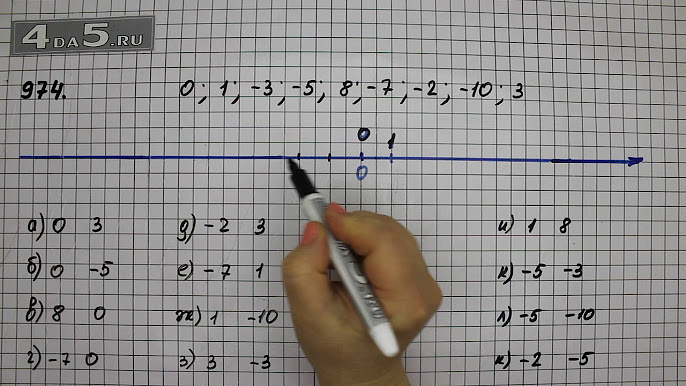 4DA5.RU
974. 0; 1; -3; -5; 8; -7; -2; -10; 3
0 1
0
а) 0 3 д) -2 3 и) 1 8
б) 0 -5 е) -7 1 к) -5 -3
в) 8 0 ж) 1 -10 л) -5 -10
г) -7 0 з) 3 -3 м) -2 -5